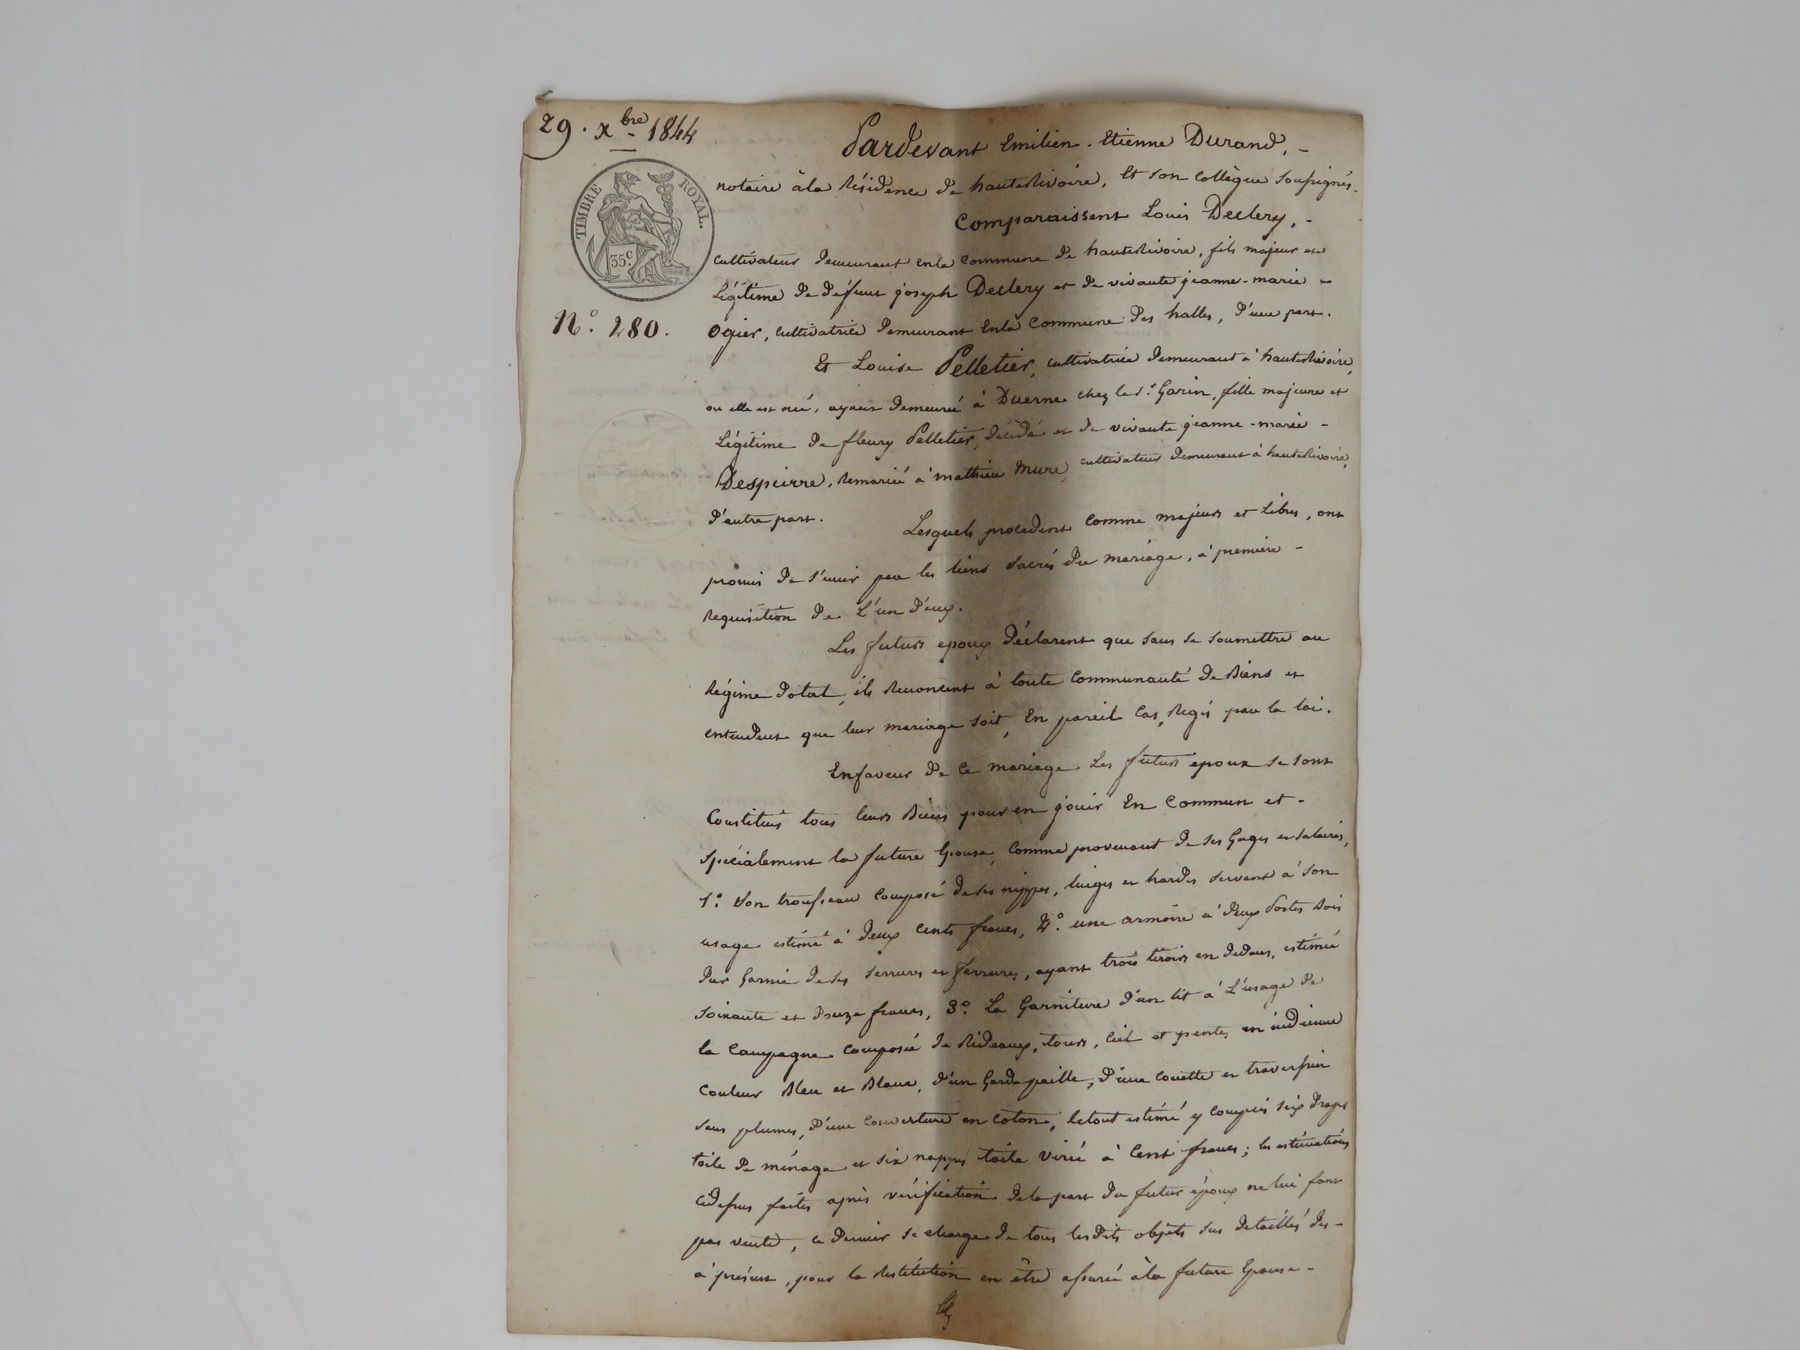 29. Xbre 1844
Pardevant Emilien-Etienne Durand,
notaire à la Résidence de hauteRivoire, Et son collègue soussignés.
TIMBRE ROYAL.
35 c.
Comparaissent Louis Declery,
cultivateur demeurant en la commune de hauteRivoire, fils majeur et
Légitime de défunt joseph Declery et de vivante jeanne-marie
N.° 280.
Ogier, cultivatrice demeurant en la Commune des halles, d'une part.
Et Louise Pelletier, cultivatrice demeurant à hauteRivoire,
ou elle est née, ayant demeurée à Duerne chez le sr. Garin, fille majeure et
Légitime de fleury Pelletier, décédé et de vivante jeanne-marie
Despierre, Remariée à mathieu Mure, cultivateur demeurant à hauteRivoire,
d'autre part.
Lesquels procedent comme majeurs et Libres, ont
promis de s'unir par les liens sacrés du mariage, à première
Requisition de L'un d'eux.
Les futurs epoux déclarent que sans se soumettre au
Régime dotal, ils Renoncent à toute communauté de Biens et
entendent que leur mariage soit, En pareil Cas, Régis par la loi.
En faveur de ce mariage Les futurs epoux se sont
Constitués tous leurs Biens pour en jouir En Commun et
spécialement la future Epouse, comme provenant de ses Gages et salaires,
1.° Son trousseau composé de ses nippes, linges et hardes servant à son
usage estimé à deux cents francs, 2.° une armoire à deux Portes Bois
dur Garnie de ses serrures et ferrures, ayant trois tiroirs en dedans, estimée
soixante et douze francs, 3.° La Garniture d'un lit à L'usage de
la Campagne composée de Rideaux, tours, Ciel et pentes en indienne
Couleur Bleu et Blanc, d'un Gardepaille, d'une couette et traversin
sans plumes, d'une couverture en coton, le tout estimé y compris six draps
toile de ménage et six nappes toile Virée à Cent francs; les estimations
cidessus faites après vérification de la part du futur époux ne lui font
pas vente, ce dernier se charge de tous lesdits objets sus détaillés dès
à présent, pour la Restitution en être assurée à la future Epouse